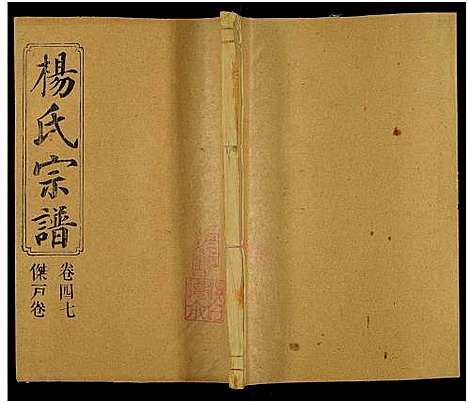 楊氏宗譜
卷四七
傑戸卷